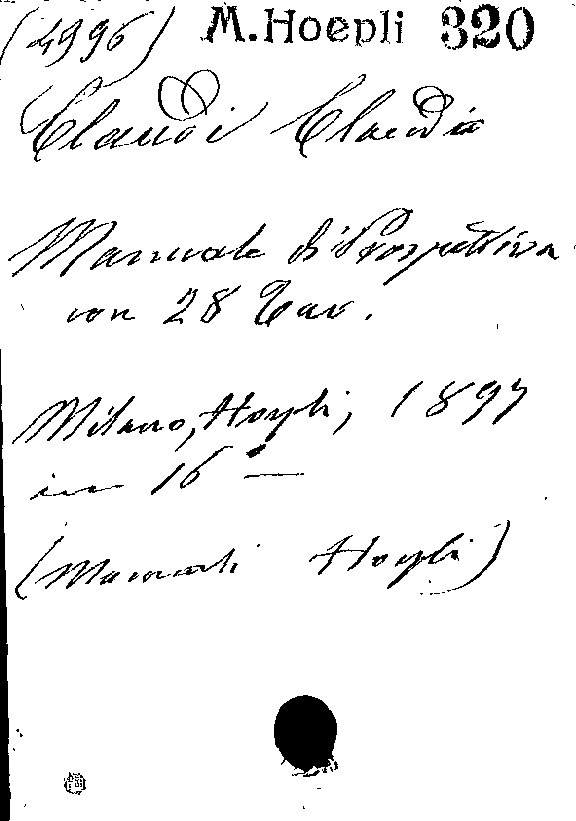 (4996) M. Hoepli 320
Claudi Claudio
Manuale di Prospettiva
con 28 Tav.
Milano, Hoepli, 1897
in 16° —
(Manuali Hoepli)